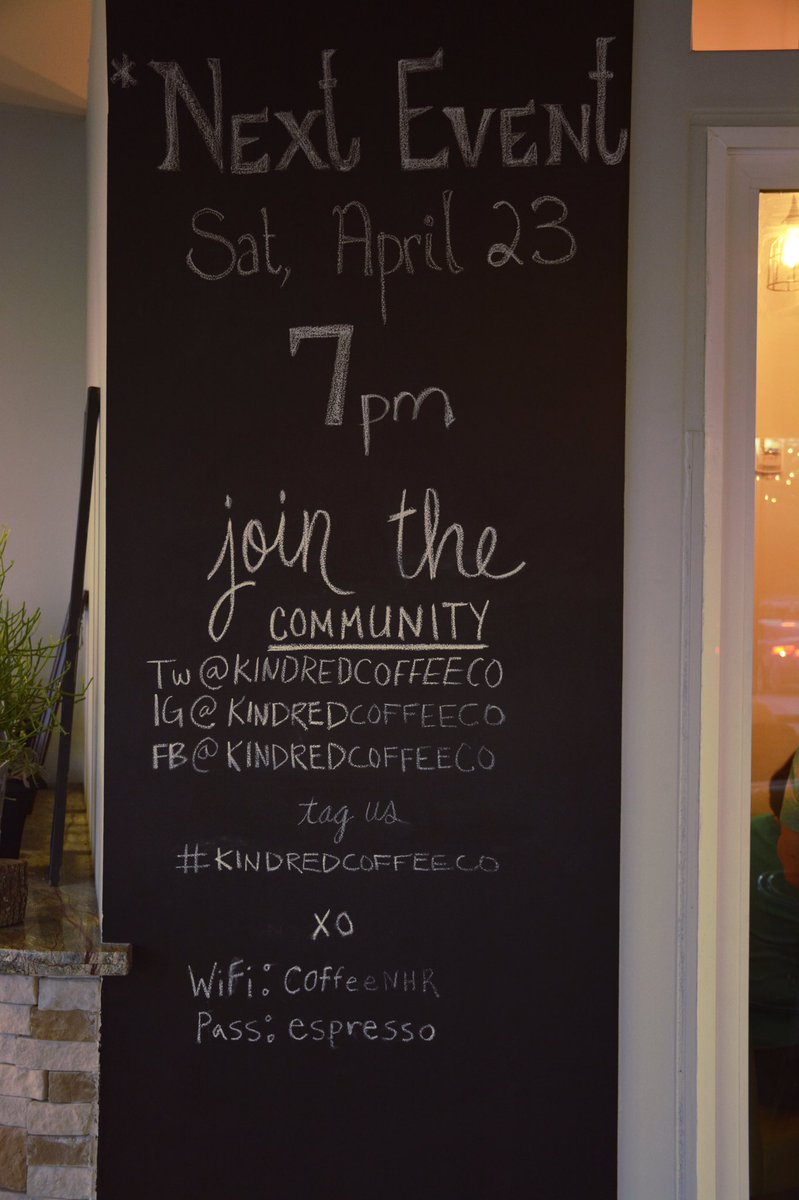 *Next Event
Sat, April 23
7pm
join the
COMMUNITY
Tw@KINDREDCOFFEECO
IG@KINDREDCOFFEECO
FB@KINDREDCOFFEECO
tag us
#KINDREDCOFFEECO
XO
WiFi: CoffeeNHR
Pass: espresso